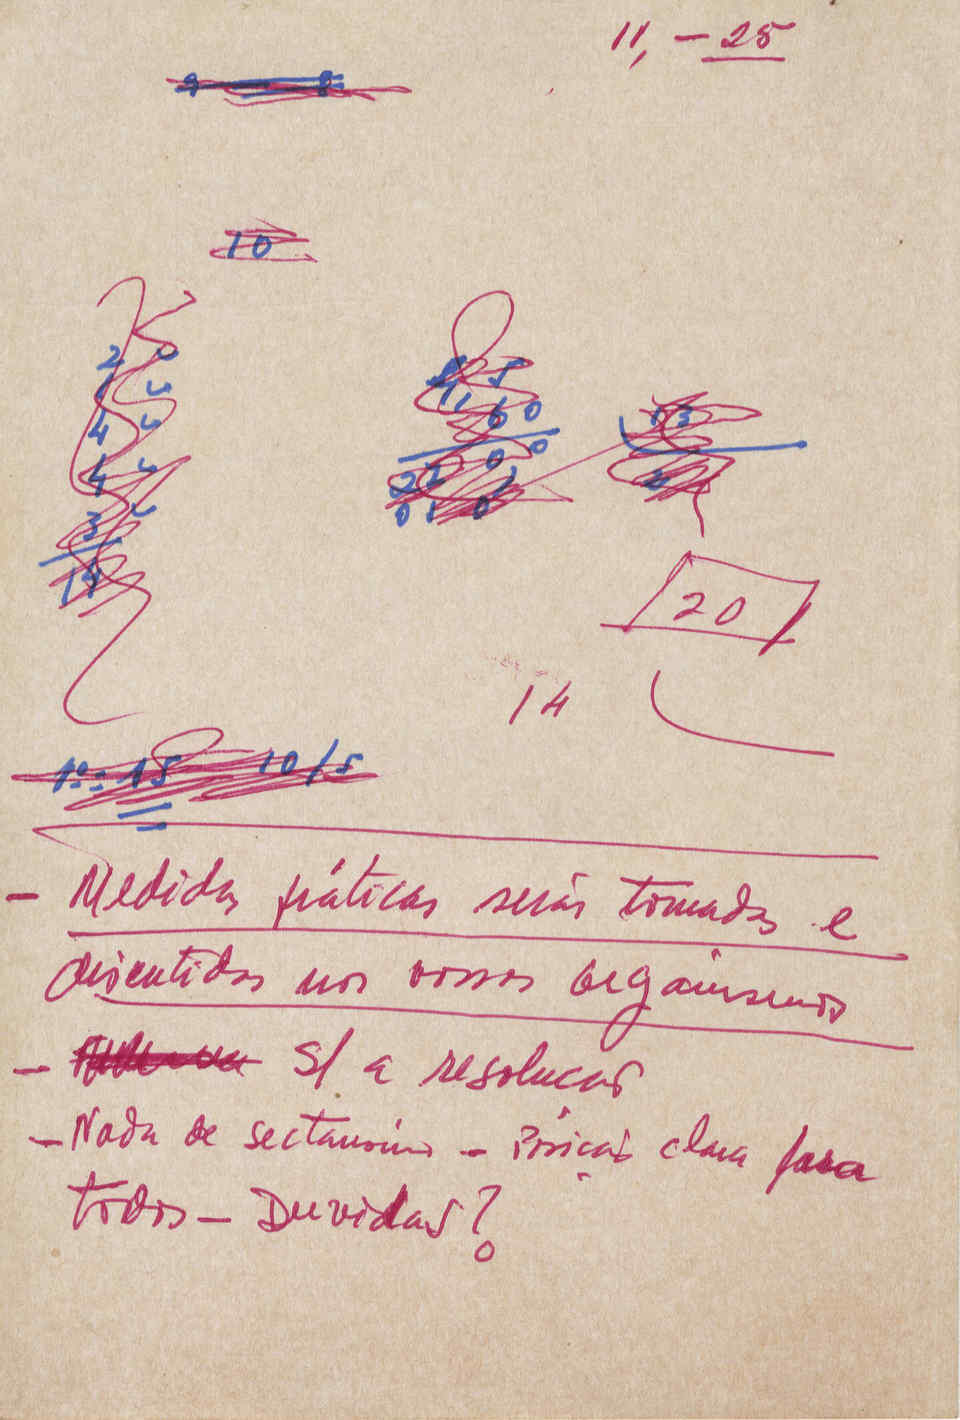 11, - 25
10
2 0
1
4
4
3
14
5
11 60
13
20
14
1º: 15 10/5
- Medidas práticas serão tomadas e
discutidas nos vossos organismos
- S/ a resolucão
- Nada de sectarismo - Posição clara para
todos - Duvidas?